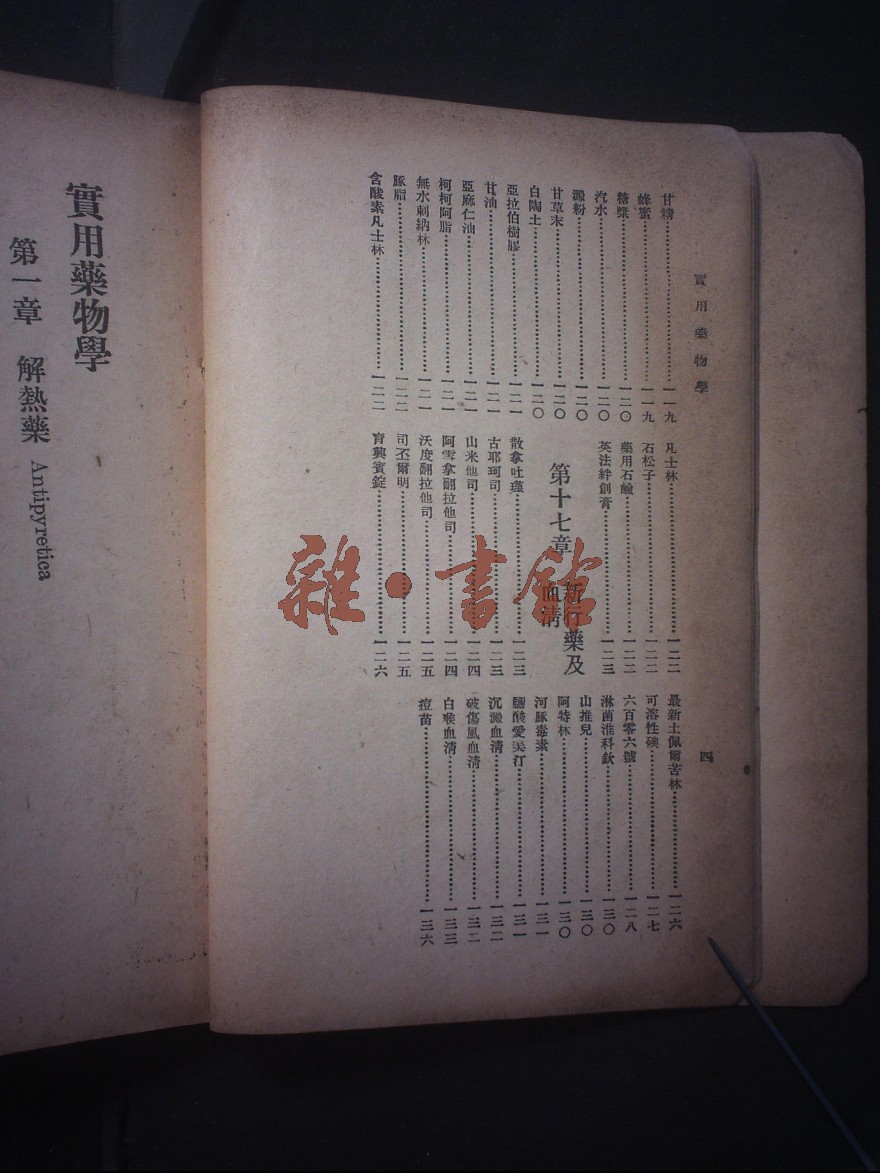 實用藥物學
四
甘精……一一九
蜂蜜……一一九
糖漿……一二〇
汽水……一二〇
澱粉……一二〇
甘草末……一二〇
白陶土……一二〇
亞拉伯樹膠……一二一
甘油……一二一
亞麻仁油……一二一
柯柯阿脂……一二一
無水刺納林……一二一
豚脂……一二二
含酸素凡士林……一二二
凡士林……一二二
石松子……一二二
藥用石鹼……一二二
英法絆創膏……一二三
第十七章 新行藥及血清
散拿吐瑾……一二三
古耶珂司……一二三
山米他司……一二四
阿雪拿翻拉他司……一二四
沃度翻拉他司……一二五
司丕爾明……一二五
育興賓錠……一二六
最新土佩爾苦林……一二六
可溶性碘……一二七
六百零六號……一二八
淋菌淮科欽……一三〇
山推兒……一三〇
阿特林……一三〇
河豚毒素……一三一
鹽酸愛美汀……一三一
沉澱血清……一三二
破傷風血清……一三二
白喉血清……一三三
痘苗……一三六
實用藥物學
第一章 解熱藥 Antipyretica
雜·書館